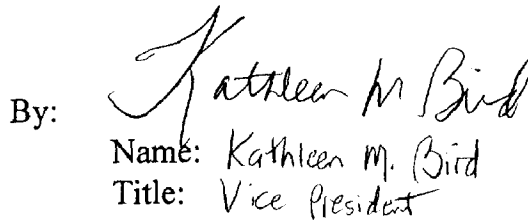 By: Kathleen M Bird
Name: Kathleen M. Bird
Title: Vice President